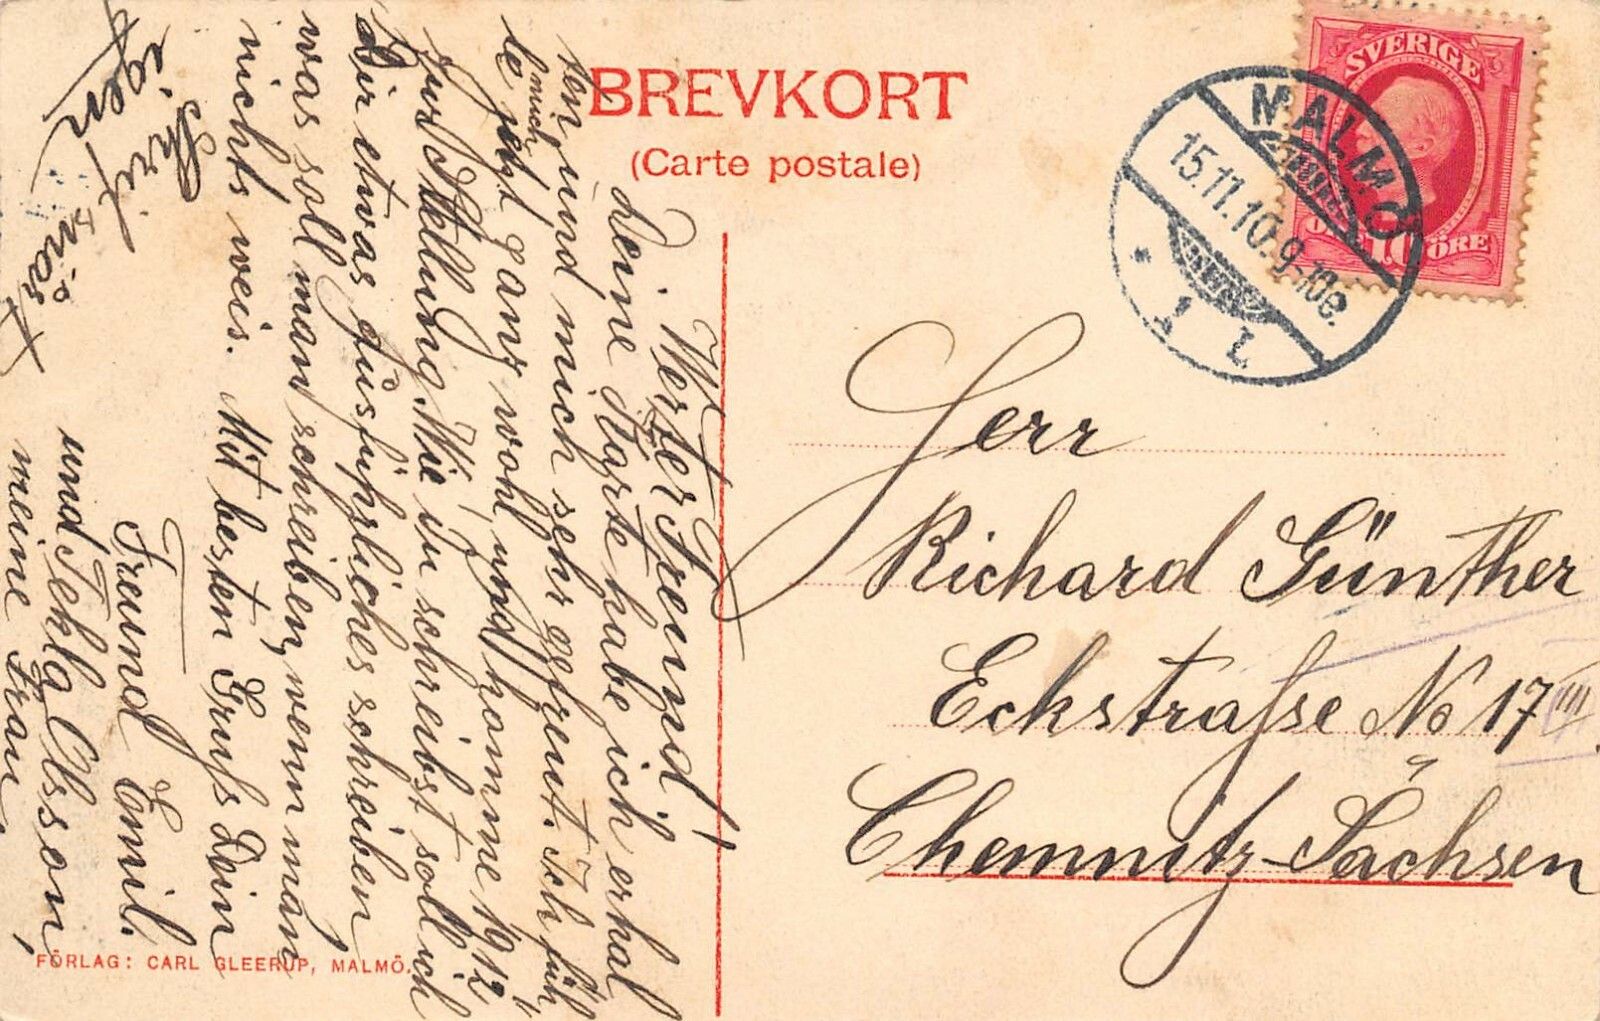 BREVKORT
(Carte postale)
SVERIGE
10 ÖRE
MALMÖ
15.11.10.9-10e.
1 1
Herr
Richard Günther
Eckstraſse No 17 III
Chemnitz-Sachsen
Werter Freund!
Deine Karte habe ich erhal
ten und mich sehr gefreut. Ich füh
le mich jetzt ganz wohl, und komme 1912
zur Stellung. Wie du schreibst soll ich
Dir etwas ausführliches schreiben
was soll man schreiben, wenn man
nichts weis. Mit besten Gruſs Dein
Freund Emil.
und Tekla Olsson,
meine Frau,
igen
FÖRLAG: CARL GLEERUP, MALMÖ.